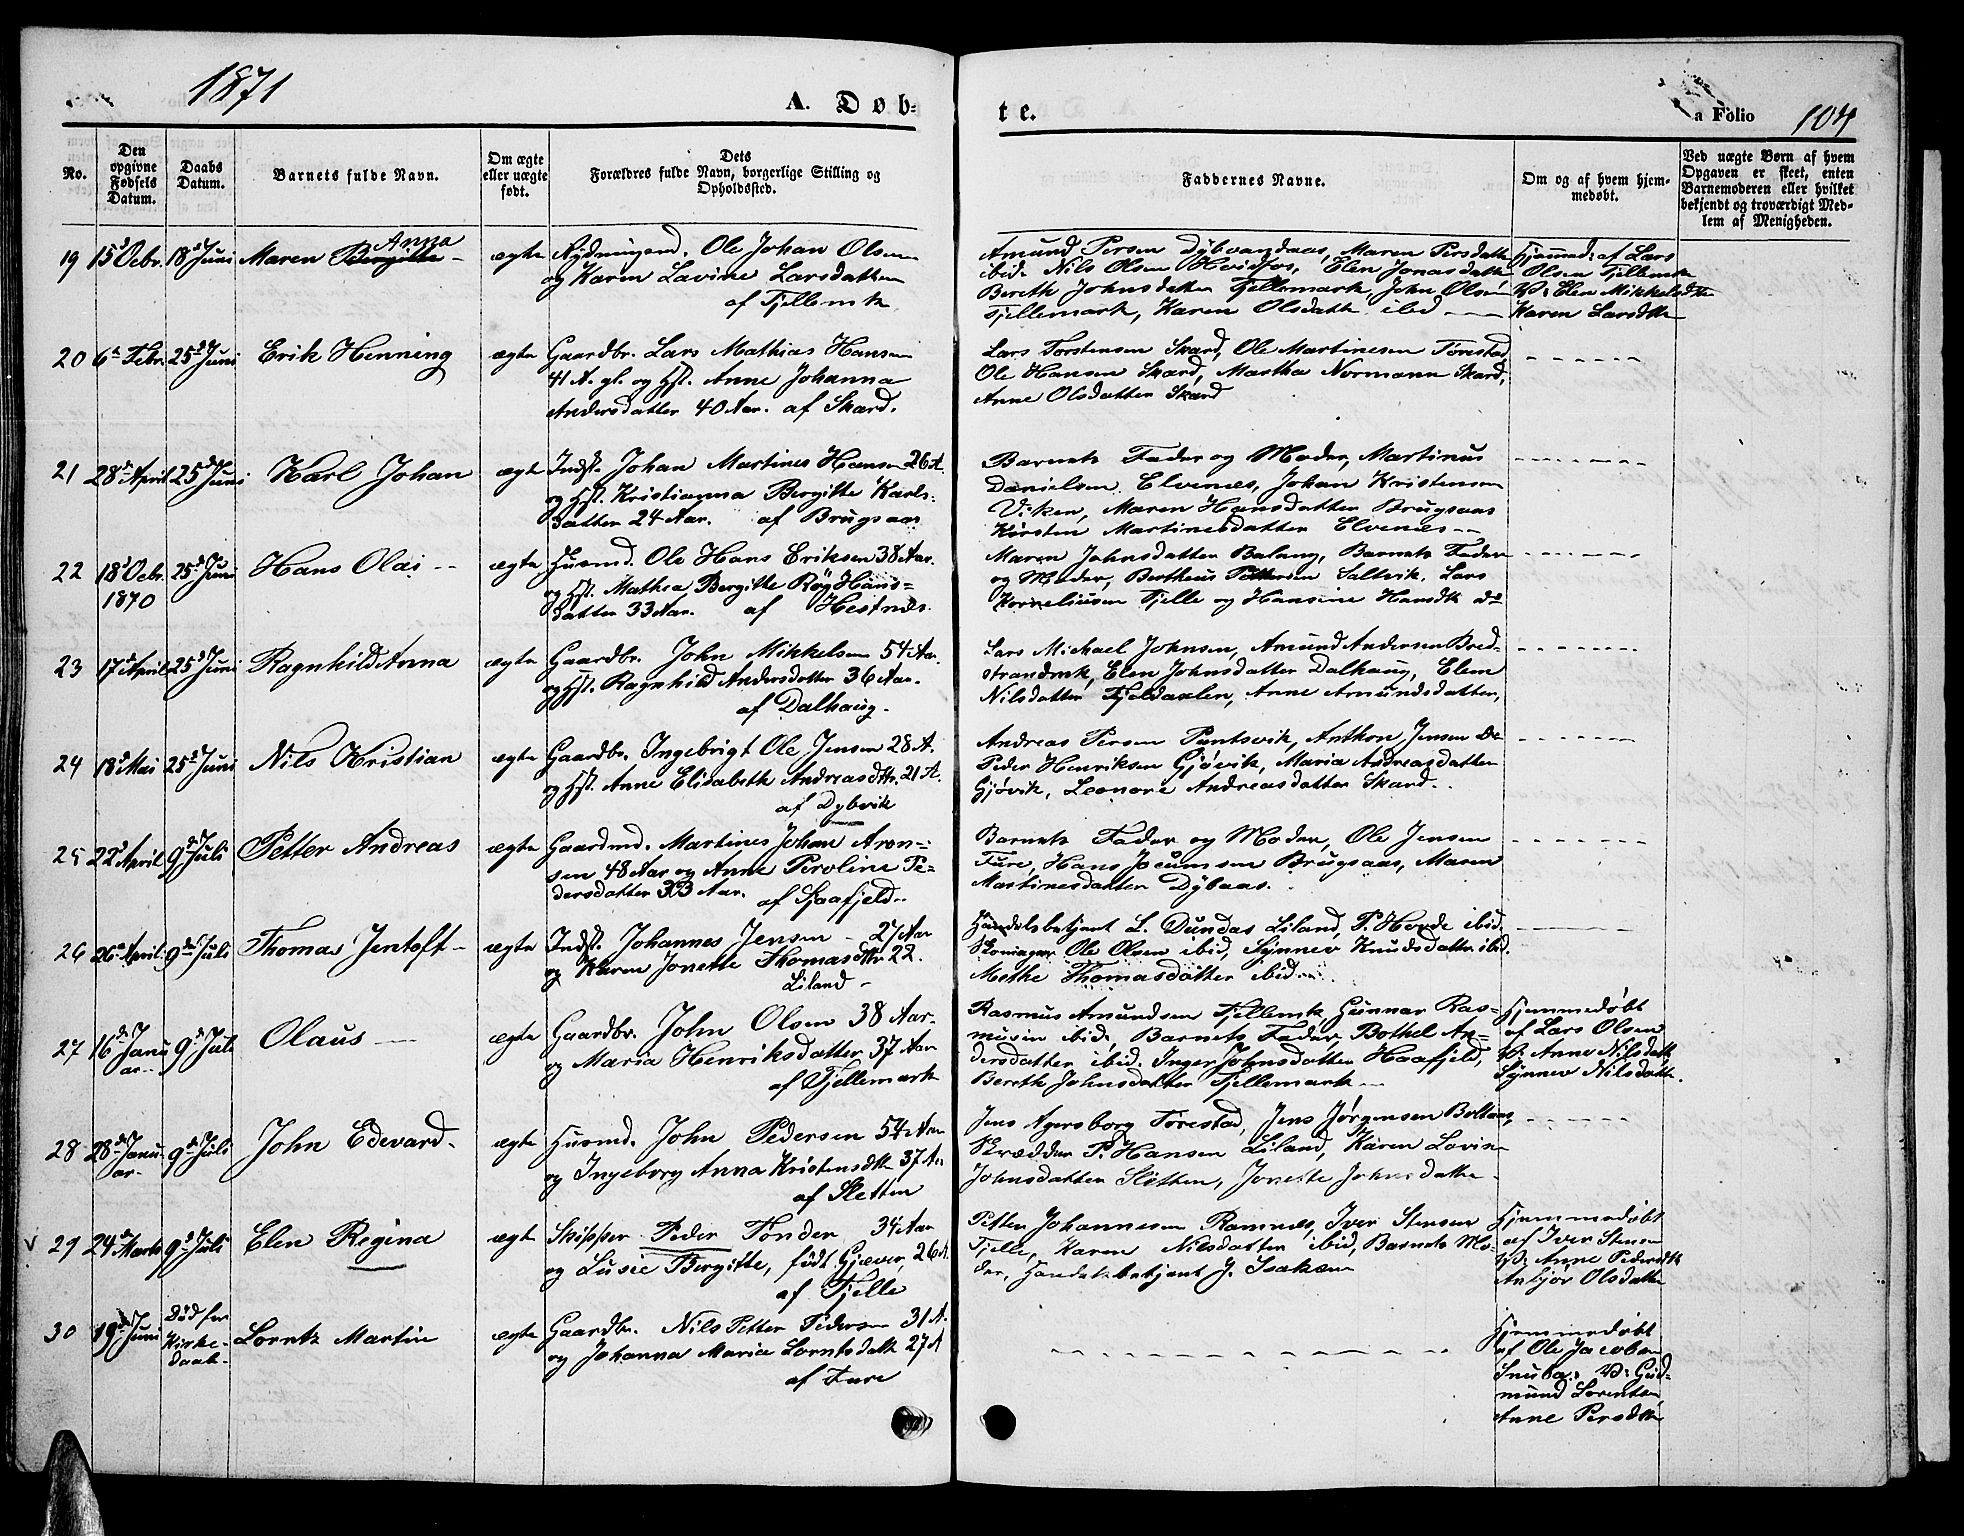 1871
A. Døb-
te.
a Folio 104
No.
Den opgivne Fødsels Datum.
Daabs Datum.
Barnets fulde Navn.
Om ægte eller uægte født.
Dets Forældres fulde Navn, borgerlige Stilling og Opholdssted.
Faddernes Navne.
Om og af hvem hjemmedøbt.
Ved uægte Børn af hvem Opgaven er skeet, enten Barnemoderen eller hvilket bekjendt og troværdigt Medlem af Menigheden.
19 15d Febr. 18d Juni Maren Bergitte Anna ægte Rydningsmd. Ole Johan Olsen
og Karen Lavine Larsdatter
af Fjellemark
Amund Persen Dybvandaas, Maren Persdatter
ibid. Nils Olsen Hvidfos, Elen Jonasdatter
Bereth Johnsdatter Fjellemark, John Olsen
Fjellemark, Karen Olsdatter ibid
Hjemmed: af Lars
Olsen Fjellemark
V: Elen Mikkelsdtr
Karen Larsdtr
20 6te Febr. 25de Juni Erik Henning ægte Gaardbr. Lars Mathias Hansen
41 A. gl. og Hst. Anne Johanna
Andersdatter 40 Aar. af Skard.
Lars Torstensen Skard, Ole Martinesen Tørestad
Ole Hansen Skard, Martha Normann Skard,
Anne Olsdatter Skard
21 28de April 25d Juni Karl Johan ægte Indst. Johan Martines Hansen 26 A.
og Hst. Kristianna Bergitte Karls-
datter 24 Aar. af Brugsaas
Barnets Fader og Moder, Martinus
Danielsen Elvenes, Johan Kristensen
Viken, Maren Hansdatter Brugsaas
Kirsten Martinesdatter Elvenes
22 18d Febr. 1870 25d Juni Hans Olai ægte Husmd. Ole Hans Eriksen 38 Aar.
og Hst. Mathea Bergitte Røg Hans-
datter 33 Aar. af Hestnes.
Maren Johnsdatter Balang, Barnets Fader
og Moder, Bertheus Pettersen Saltvik, Lars
Korneliusen Fjelle og Hansine Hansdtr do
23 17d April 25d Juni Ragnhild Anna ægte Gaardbr. John Mikkelsen 54 Aar.
og Hst. Ragnhild Andersdatter 36 Aar.
af Dalhaug.
Lars Michael Johnsen, Amund Andersen Bred-
strandmk, Elen Johnsdatter Dalhaug, Elen
Nilsdatter Fjeldaxlen, Anne Amundsdatter,
24 18d Mai 25d Juni Nils Kristian ægte Gaardbr. Ingebrigt Ole Jensen 28 A.
og Hst. Anne Elisabeth Andreasdtr. 21 A.
af Dybvik
Andreas Persen Puntsvik, Anthon Jensen do
Peder Henriksen Gjøvik, Maria Andreasdatter
Gjøvik, Leonore Andreasdatter Skard.
25 22d April 9d Juli Petter Andreas ægte Gaardmd. Martines Johan Aron-
sen 48 Aar og Anne Peroline Pe-
dersdatter 33 Aar. af Sjaafjeld
Barnets Fader og Moder, Ole Jensen
Fure, Hans Jocumsen Brugsaas, Maren
Martinesdatter Dybaas.
26 26de April 9de Juli Thomas Jentoft ægte Indst. Johannes Jensen 27 Aar
og Karen Jonette Thomasdtr 22.
Liland
Handelsbetjent L. Dundas Liland, P. Hovde ibid.
Skomager Ole Olsen ibid, Synnev Knudsdatter ibid.
Methe Thomasdatter ibid.
27 16de Januar 9d Juli Olaus ægte Gaardbr. John Olsen 38 Aar.
og Maria Henriksdatter 37 Aar
af Fjellemark
Rasmus Amundsen Fjellemk, Gunnar Ras-
musen ibid, Barnets Fader, Bothel An-
dersdatter ibid. Inger Johnsdatter Haafjeld,
Bereth Johnsdatter Fjellemark
Hjemmedøbt
af Lars Olsen
V: Anne Nilsdtr
Synnev Nilsdatter.
28 28de Januar 9de Juli John Edevard ægte Husmd. John Pedersen 54 Aar
og Ingeborg Anna Kristensdtr 37 Aar
af Sletten
Jens Agersborg Tørestad, Jens Jørgensen Boltaas,
Skrædder P. Hansen Liland, Karen Lovise
Johnsdatter Sletten, Jonette Johnsdatter
29 24de Marts 9d Juli Elen Regina ægte Skipper Peder Tønder 34 Aar
og Lusie Bergitte, født Gjæver, 26 A.
af Fjelle
Petter Johannesen Ramnes, Iver Stensen
Fjelle, Karen Nilsdatter ibid, Barnets Mo-
der, Handelsbetjent J. Isaksen
Hjemmedøbt
af Iver Stensen
V: Anne Pedersdtr
Anbjør Olsdatter
30 19de Juni Død før Kirke-daab. Lorntz Martin ægte Gaardbr. Nils Petter Pedersen 31 A.
og Johanna Maria Lorntsdatter 27 A
af Fure
Hjemmedøbt
af Ole Jacobsen
Snuba: V: Gud-
mund Lorentsen
Anne Persdtr